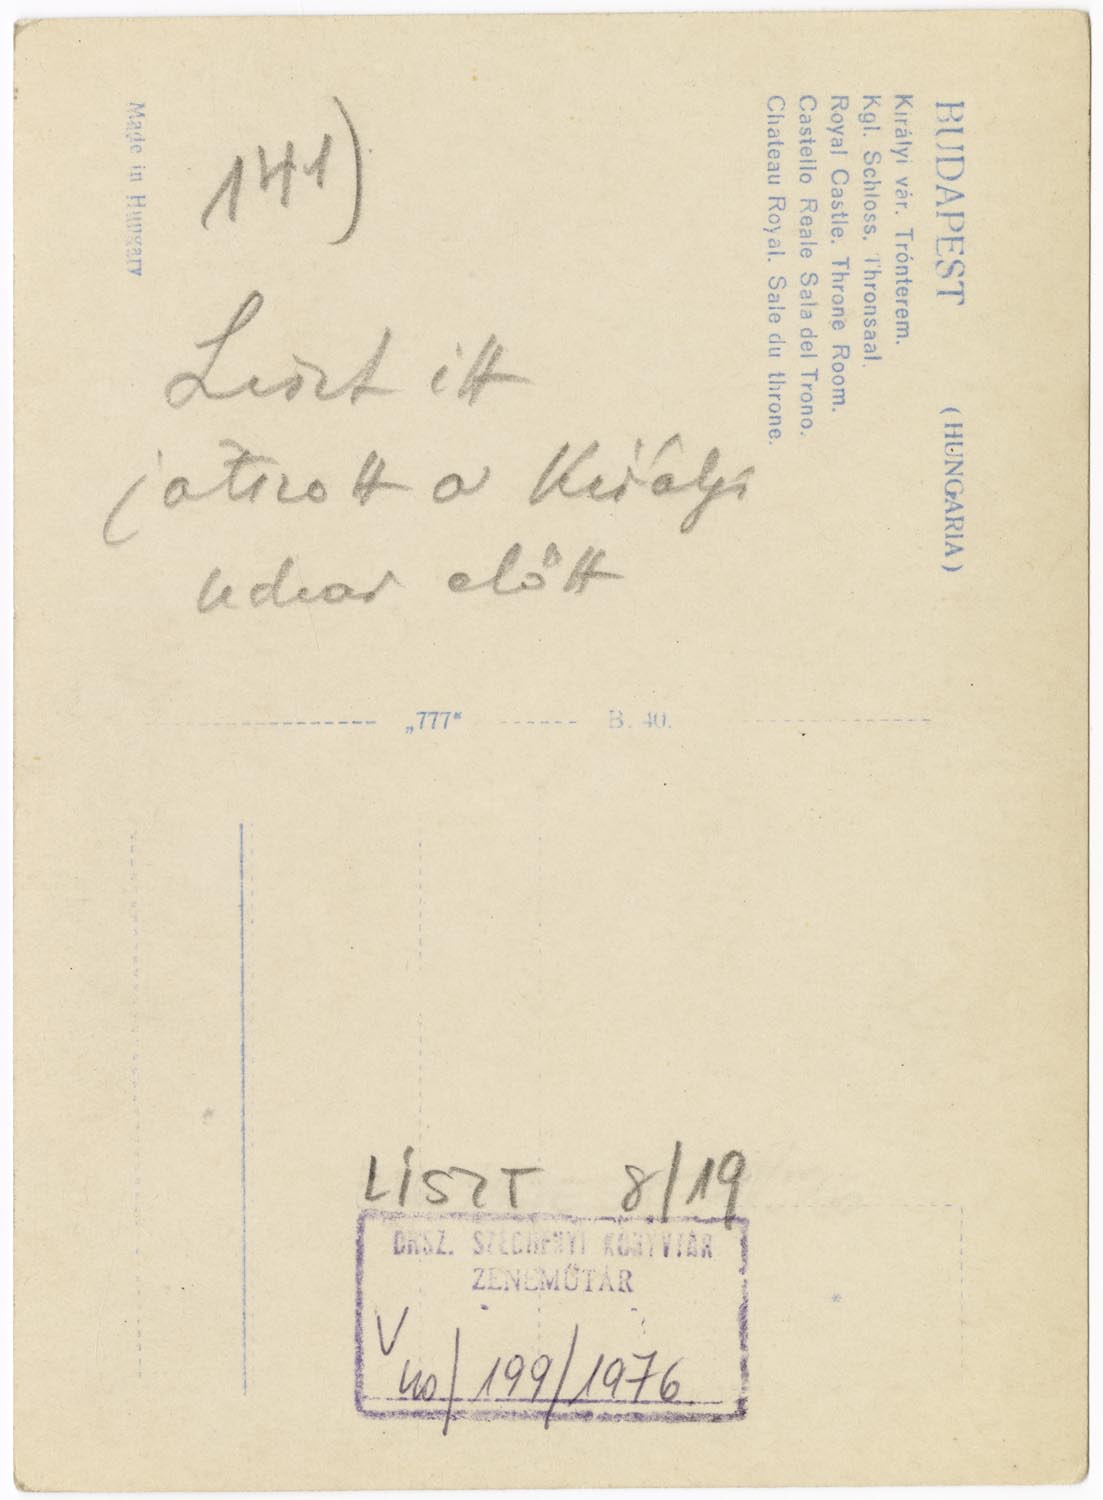 BUDAPEST (HUNGARIA)
Királyi vár. Trónterem.
Kgl. Schloss, Thronsaal.
Royal Castle. Throne Room.
Castello Reale Sala del Trono.
Chateau Royal. Sale du throne.
Made in Hungary
141)
Liszt itt
játszott a Királyi
udvar előtt
„777“ B. 40.
LISZT 8/19
ORSZ. SZÉCHÉNYI KÖNYVTÁR
ZENEMŰTÁR
V
/199/1976